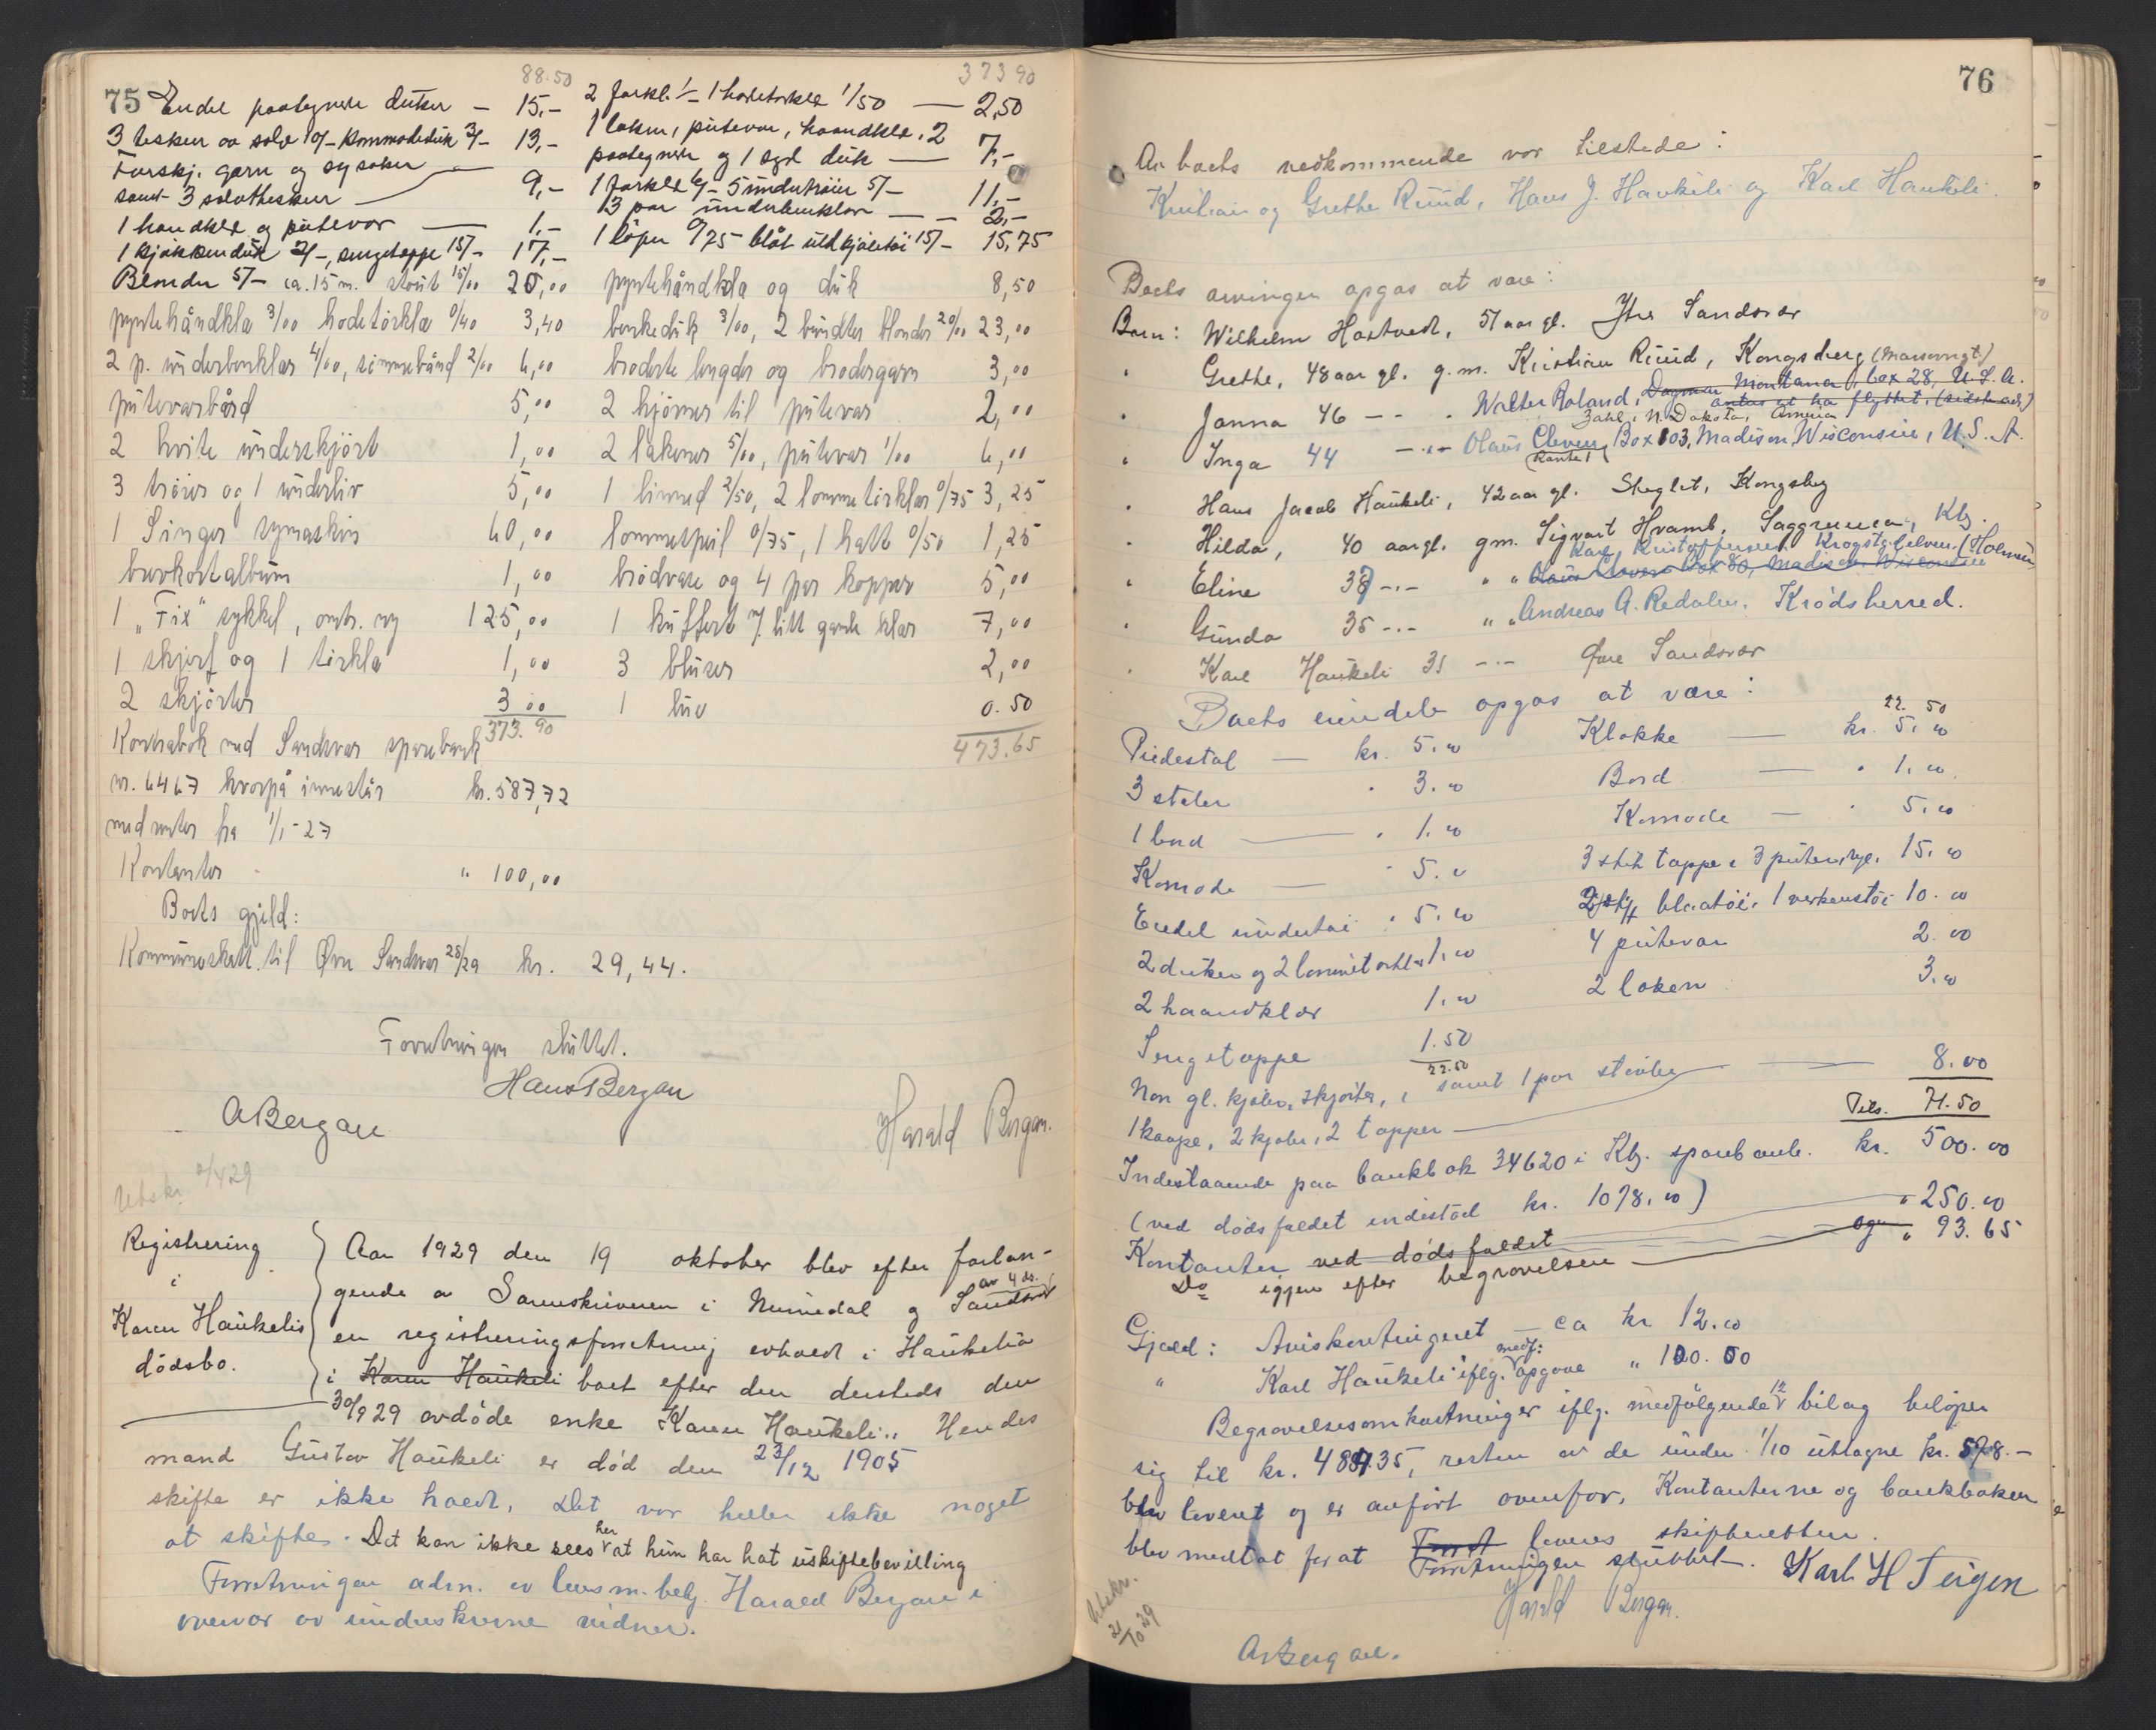 75
88.50
373 90
Endel paategnede duker — 15,-
3 teskeer av sølv 10/- kommodeduk 3/- 13,-
Forskj. garn og sysaker —
samt 3 sølvtheskeer — 9,-
1 handklæ og putevar — 1,-
1 kjøkkenduk 2/-, sengeteppe 15/- 17,-
Blonder 5/- ca. 15 m. strut 15/00 20,00
pyntehåndklæ 3/00 hodetørklæ 0/40 3,40
2 p. underbenklær 4/00, simmebånd 2/00 6,00
putevarbård 5,00
2 hvite underskjørt 1,00
3 trøier og 1 underliv 5,00
1 Singer symaskin 60,00
brevkortalbum 1,00
1 „Fix" sykkel, omtr. ny 125,00
1 skjerf og 1 tørklæ 1,00
2 skjørter 3 00
373.90
Kontrabok med Sandsvær sparebank
nr. 6467 hvorpå innestår kr. 587,72
med renter fra 1/1-27
Kontanter " 100,00
Boets gjeld:
Kommuneskatt til Øvre Sandsvær 28/29 kr. 29,44.
2 forkl. 1/- 1 hodetørklæ 1/50 — 2,50
1 laken, putevar, haandklæ, 2
paategnede og 1 syd duk — 7,-
1 forklæ 6/- 5 undertrøier 5/- 11,-
3 par underbenklær — 2,-
1 løper 0/75 blåt uldkjoletøi 15/- 15,75
pyntehåndklæ og duk 8,50
benkeduk 3/00, 2 bundter blonder 20/00 23,00
broderte lengder og brodergarn 3,00
2 hjørner til putevar 2,00
2 lakener 5/00, putevar 1/00 6,00
1 linned 2/50, 2 lommetørklær 0/75 3,25
lommespeil 0/75, 1 hatt 0/50 1,25
brødvare og 4 par kopper 5,00
1 kuffert m. litt gamle klær 7,00
3 bluser 2,00
1 luv 0.50
473.65
Forretningen sluttet.
Hans Bergan
ABergan
Harald Bergan.
Utskr. /429
Registrering
i
Karen Haukelis
dødsbo.
Aar 1929 den 19 oktober blev efter forlan-
gende av Sorenskriveren i Numedal og Sandsvær av 4 ds.
en registreringsforretning avholdt i Haukelia
i Karen Haukeli boet efter den dersteds den
30/9 29 avdøde enke Karen Haukeli.. Hendes
mand Gustav Haukeli er død den 23/12 1905
skifte er ikke holdt. Det var heller ikke noget
at skifte. Det kan ikke sees her at hun har hat uskiftebevilling
Forretningen adm. av lensm. betj. Harald Bergan i
overvær av underskrevne vidner.
76
Av boets vedkommende var tilstede:
Kristian og Grethe Ruud, Hans J. Haukeli og Karl Haukeli.
Boets arvinger opgas at være:
Barn: Wilhelm Hostvedt, 51 aar gl. Ytre Sandsvær
" Grethe, 48 aar gl. g.m. Kristian Ruud, Kongsberg (Marsovngt.)
" Janna 46 — - . Walter Roland, Dagmar Montana, box 28, U.S.A.
antas at ha flyttet. (sidste adr.)
Zahl, N. Dakota, Amerika
" Inga 44 — " — Olaus Cleven, Box 103, Madison, Wisconsin, U.S.A.
(Rante)
" Hans Jacob Haukeli, 42 aar gl. Skoglet, Kongsberg
" Hilda, 40 aar gl. gm. Sigvart Hvamb, Saggrenda, Kbg.
" Eline 37 -.- " " Karl Kristoffersen Krogstadelven (Holmen
Olaus Cleven Box 80, Madison Wisconsin
" Gunda 35 -.- " " Andreas A. Redalen, Krødsherred.
" Karl Haukeli 31 -.- Øvre Sandsvær
Boets eiendele opgas at være:
22. 50
Piedestal — kr. 5.00 Klokke — kr. 5.00
3 stoler " 3.00 Bord — " 1.00
1 bord — " 1.00 Komode — " 5.00
Komode — " 5.00 3 stk tæppe, 3 puter, 15.00
Endel undertøi " 5.00 blaatøi, 1 verkenstøi 10.00
2 duker og 2 lommetørkl. 1.00 4 putevar 2.00
2 haandklær 1.00 2 laken 3.00
Sengetæppe 1.50
22.50
Non gl. kjoler, skjorter, samt 1 par støvler — 8.00
1 kaape, 2 kjoler, 2 tæpper —
Tils. 71.50
Indestaaende paa bankbok 34620 i Kbg. sparebank. kr. 500.00
(ved dødsfaldet indestod kr. 1078.00)
Kontanter ved dødsfaldet " 250.00
Do igjen efter begravelsen — og " 93.65
Gjeld: Aviskontingent — ca kr 12.00
" Karl Haukeli iflg. medf: opgave " 100.00
Begravelsesomkostninger iflg. medfølgende 12 bilag beløper
sig til kr. 484.35, resten av de under 1/10 uttagne kr. 578.-
blev leveret og er anført ovenfor. Kontanterne og bankboken
blev medtat for at leveres skifteretten.
Forretningen sluttet. Karl H Teigen
Harald Bergan.
ABergan.
Utskr.
21/10 29